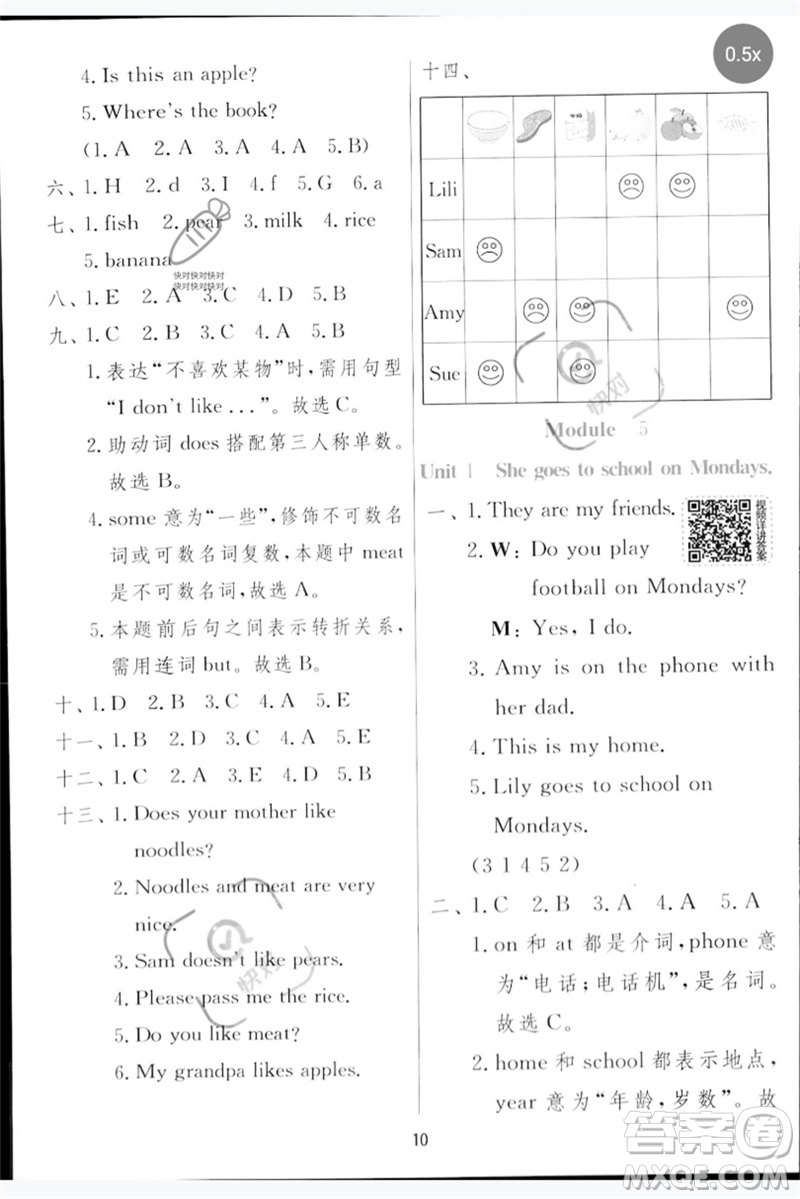 0.5x
4. Is this an apple?
5. Where's the book?
(1. A 2. A 3. A 4. A 5. B)
六、1. H 2. d 3. f 4. r 5. G 6. a
七、1. fish 2. pear 3. milk 4. rice
5. banana
快对快对快对
快对快对快对
八、1. E 2. A 3. C 4. D 5. B
九、1. C 2. B 3. B 4. A 5. B
1. 表达“不喜欢某物”时,需用句型
“I don't like ...”。故选 C。
2. 助动词 does 搭配第三人称单数。
故选 B。
4. some 意为“一些”,修饰不可数名
词或可数名词复数,本题中 meat
是不可数名词,故选 A。
5. 本题前后句之间表示转折关系,
需用连词 but。故选 B。
十、1. D 2. B 3. C 4. A 5. E
十一、1. B 2. D 3. A 4. C 5. E
十二、1. C 2. A 3. E 4. D 5. B
十三、1. Does your mother like
noodles?
2. Noodles and meat are very
nice.
3. Sam doesn't like pears.
4. Please pass me the rice.
5. Do you like meat?
6. My grandpa likes apples.
快对
十四、
Lili
Sam
Amy
Sue
快对
Module 5
Unit 1 She goes to school on Mondays.
一、1. They are my friends.
2. W: Do you play
football on Mondays?
M: Yes, I do.
视频详讲答案
3. Amy is on the phone with
her dad.
4. This is my home.
5. Lily goes to school on
Mondays.
(3 1 4 5 2)
二、1. C 2. B 3. A 4. A 5. A
1. on 和 at 都是介词,phone 意
为“电话;电话机”,是名词。
故选 C。
2. home 和 school 都表示地点,
year 意为“年龄,岁数”。故
10
答案卷
MXQE.COM